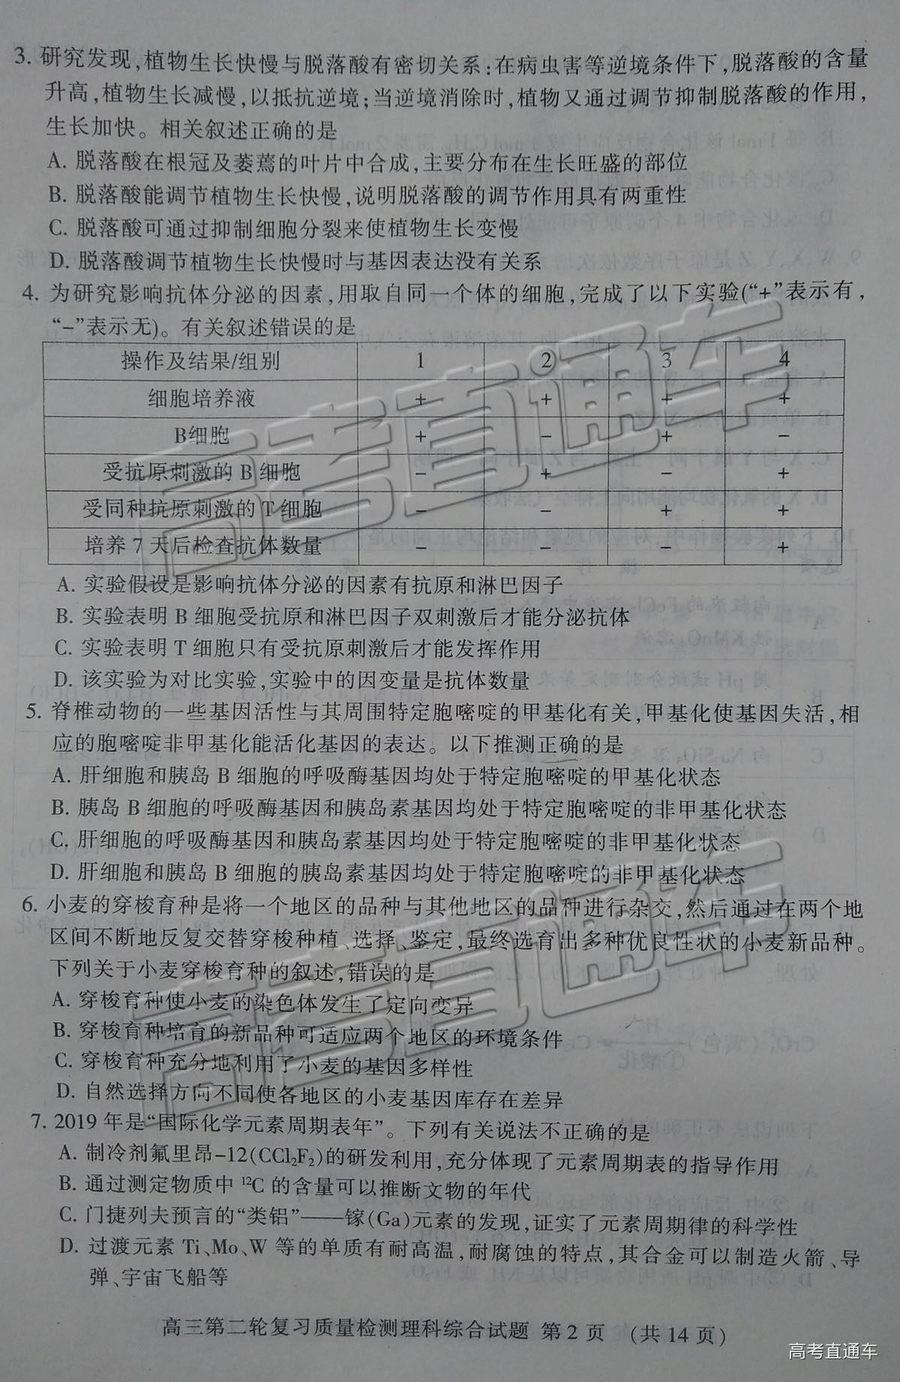 3. 研究发现,植物生长快慢与脱落酸有密切关系:在病虫害等逆境条件下,脱落酸的含量
升高,植物生长减慢,以抵抗逆境;当逆境消除时,植物又通过调节抑制脱落酸的作用,
生长加快。相关叙述正确的是
A. 脱落酸在根冠及萎蔫的叶片中合成,主要分布在生长旺盛的部位
B. 脱落酸能调节植物生长快慢,说明脱落酸的调节作用具有两重性
C. 脱落酸可通过抑制细胞分裂来使植物生长变慢
D. 脱落酸调节植物生长快慢时与基因表达没有关系
4. 为研究影响抗体分泌的因素,用取自同一个体的细胞,完成了以下实验(“+”表示有,
“−”表示无)。有关叙述错误的是
操作及结果/组别 1 2 3 4
细胞培养液 + + + +
B细胞 + − + −
受抗原刺激的 B 细胞 − + − +
受同种抗原刺激的 T 细胞 − − + +
培养 7 天后检查抗体数量 − − − +
A. 实验假设是影响抗体分泌的因素有抗原和淋巴因子
B. 实验表明 B 细胞受抗原和淋巴因子双刺激后才能分泌抗体
C. 实验表明 T 细胞只有受抗原刺激后才能发挥作用
D. 该实验为对比实验,实验中的因变量是抗体数量
5. 脊椎动物的一些基因活性与其周围特定胞嘧啶的甲基化有关,甲基化使基因失活,相
应的胞嘧啶非甲基化能活化基因的表达。以下推测正确的是
A. 肝细胞和胰岛 B 细胞的呼吸酶基因均处于特定胞嘧啶的甲基化状态
B. 胰岛 B 细胞的呼吸酶基因和胰岛素基因均处于特定胞嘧啶的非甲基化状态
C. 肝细胞的呼吸酶基因和胰岛素基因均处于特定胞嘧啶的非甲基化状态
D. 肝细胞和胰岛 B 细胞的胰岛素基因均处于特定胞嘧啶的非甲基化状态
6. 小麦的穿梭育种是将一个地区的品种与其他地区的品种进行杂交,然后通过在两个地
区间不断地反复交替穿梭种植、选择、鉴定,最终选育出多种优良性状的小麦新品种。
下列关于小麦穿梭育种的叙述,错误的是
A. 穿梭育种使小麦的染色体发生了定向变异
B. 穿梭育种培育的新品种可适应两个地区的环境条件
C. 穿梭育种充分地利用了小麦的基因多样性
D. 自然选择方向不同使各地区的小麦基因库存在差异
7. 2019 年是“国际化学元素周期表年”。下列有关说法不正确的是
A. 制冷剂氟里昂-12(CCl₂F₂)的研发利用,充分体现了元素周期表的指导作用
B. 通过测定物质中 ¹²C 的含量可以推断文物的年代
C. 门捷列夫预言的“类铝”——镓(Ga)元素的发现,证实了元素周期律的科学性
D. 过渡元素 Ti、Mo、W 等的单质有耐高温,耐腐蚀的特点,其合金可以制造火箭、导
弹、宇宙飞船等
高三第二轮复习质量检测理科综合试题 第 2 页 (共 14 页)
高考直通车
高考直通车
高考直通车